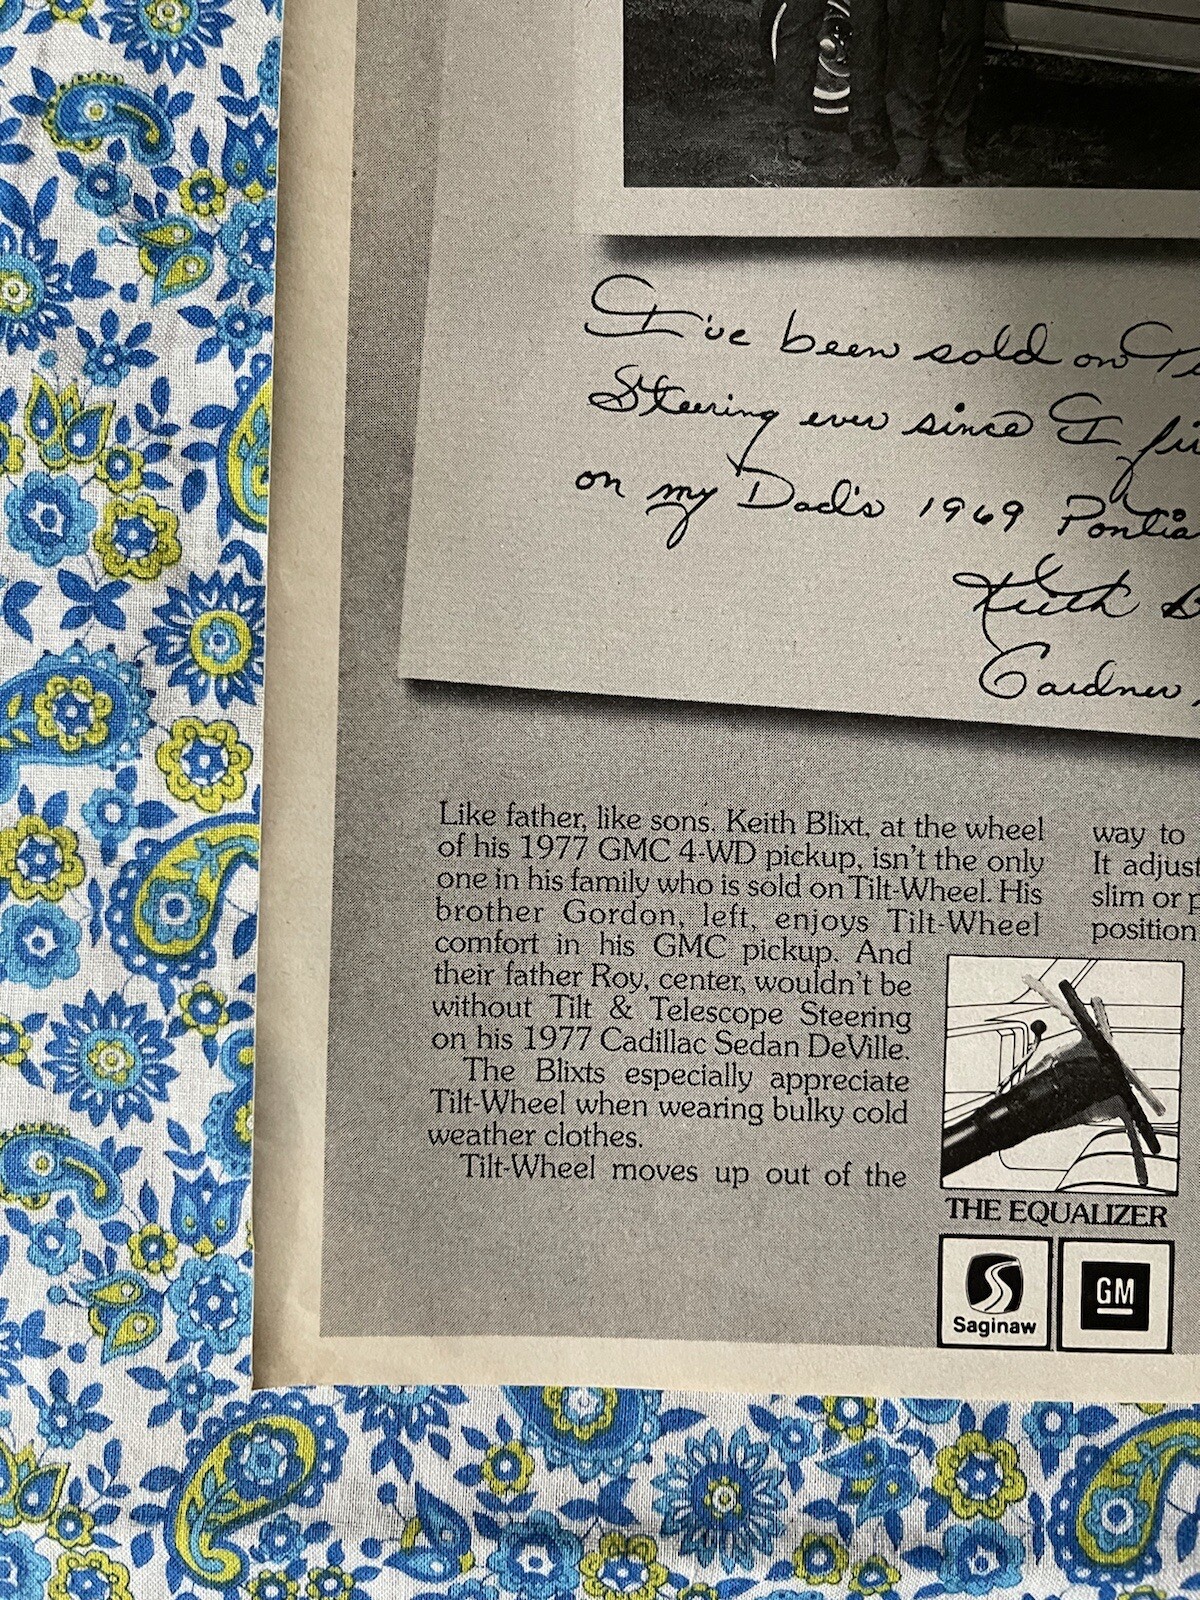 I've been sold on
Steering ever since I
on my Dad's 1969
Keith
Gardner
Like father, like sons. Keith Blixt, at the wheel
of his 1977 GMC 4-WD pickup, isn't the only
one in his family who is sold on Tilt-Wheel. His
brother Gordon, left, enjoys Tilt-Wheel
comfort in his GMC pickup. And
their father Roy, center, wouldn't be
without Tilt & Telescope Steering
on his 1977 Cadillac Sedan DeVille.
The Blixts especially appreciate
Tilt-Wheel when wearing bulky cold
weather clothes.
Tilt-Wheel moves up out of the
way to
It
slim or
position
THE EQUALIZER
Saginaw
GM